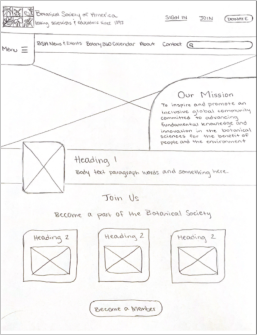 Botanical Society of America
Sign In
Join
Menu
BSA News & Events
Botany360 Calendar
About
Contact
Our Mission
To inspire and promote an
inclusive global community
committed to advancing
fundamental knowledge and
innovation in the botanical
sciences for the benefit of
people and the environment
Heading 1
Body text paragraph words and something here.
Join Us
Become a part of the Botanical Society
Heading 2
Heading 2
Heading 2
Become a Member